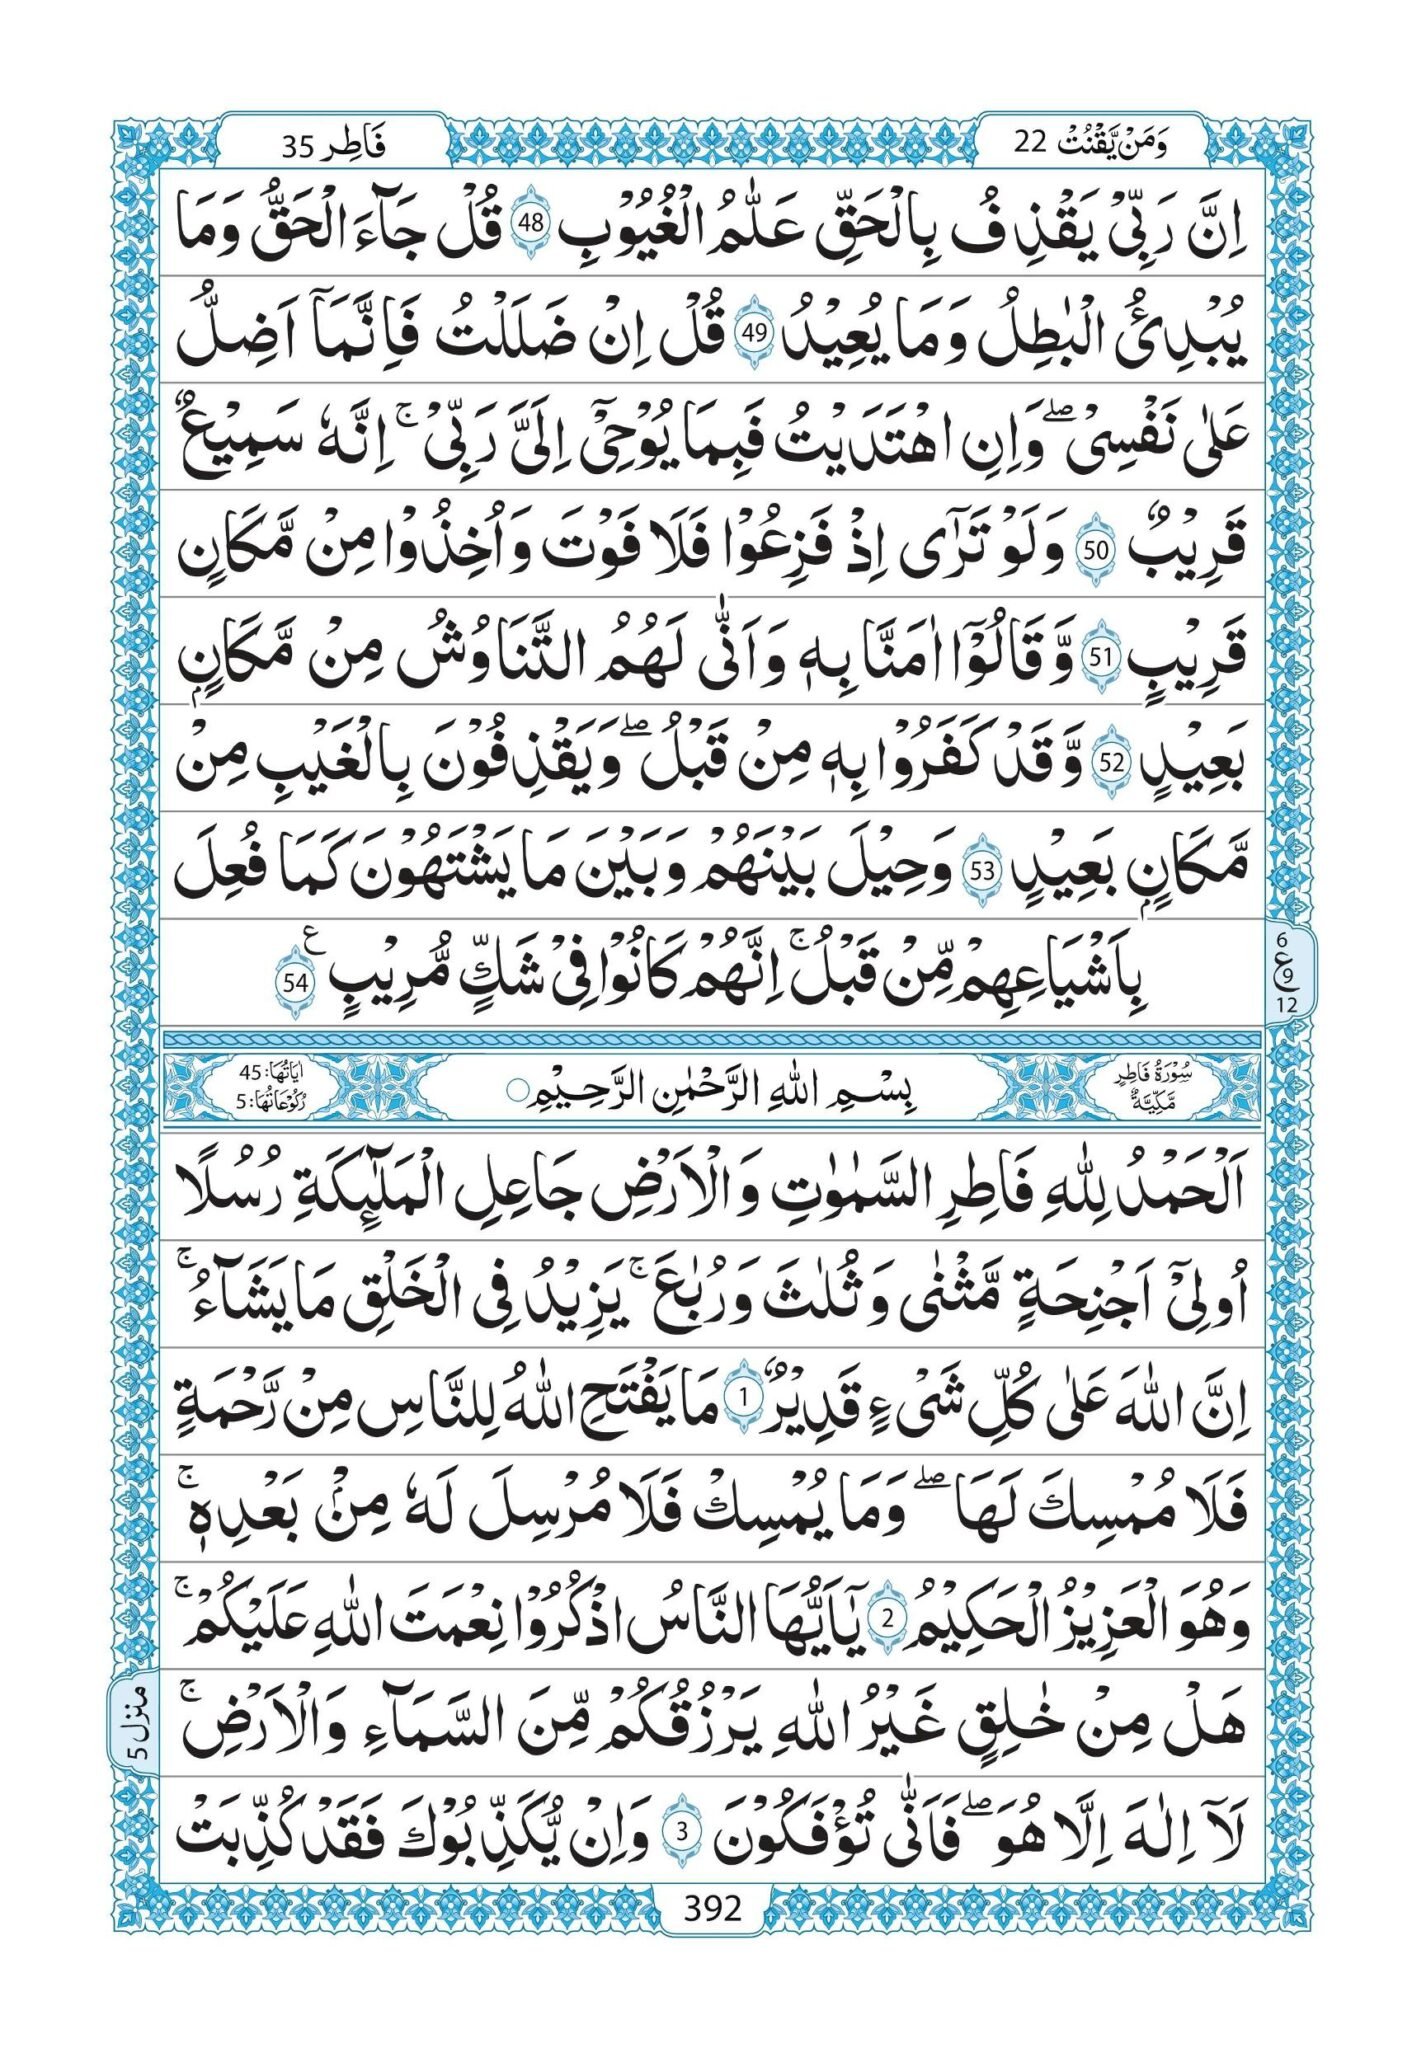 وَمَنْ يَّقْنُتْ 22
فَاطِر 35
اِنَّ رَبِّيْ يَقْذِفُ بِالْحَقِّ عَلَّامُ الْغُيُوْبِ 48 قُلْ جَآءَ الْحَقُّ وَمَا
يُبْدِئُ الْبٰطِلُ وَمَا يُعِيْدُ 49 قُلْ اِنْ ضَلَلْتُ فَاِنَّمَآ اَضِلُّ
عَلٰى نَفْسِيْ ۖ وَاِنِ اهْتَدَيْتُ فَبِمَا يُوْحِيْٓ اِلَيَّ رَبِّيْ ۚ اِنَّهٗ سَمِيْعٌ
قَرِيْبٌ 50 وَلَوْ تَرٰٓى اِذْ فَزِعُوْا فَلَا فَوْتَ وَاُخِذُوْا مِنْ مَّكَانٍ
قَرِيْبٍ 51 وَّقَالُوْٓا اٰمَنَّا بِهٖ وَاَنّٰى لَهُمُ التَّنَاوُشُ مِنْ مَّكَانٍۭ
بَعِيْدٍ 52 وَّقَدْ كَفَرُوْا بِهٖ مِنْ قَبْلُ ۖ وَيَقْذِفُوْنَ بِالْغَيْبِ مِنْ
مَّكَانٍۭ بَعِيْدٍ 53 وَحِيْلَ بَيْنَهُمْ وَبَيْنَ مَا يَشْتَهُوْنَ كَمَا فُعِلَ
بِاَشْيَاعِهِمْ مِّنْ قَبْلُ ۚ اِنَّهُمْ كَانُوْا فِيْ شَكٍّ مُّرِيْبٍ ع 54
6
ع 9
12
سُوْرَةُ فَاطِرٍ مَكِّيَّةٌ
بِسْمِ اللّٰهِ الرَّحْمٰنِ الرَّحِيْمِ
اٰيَاتُهَا: 45
رُكُوْعَاتُهَا: 5
اَلْحَمْدُ لِلّٰهِ فَاطِرِ السَّمٰوٰتِ وَالْاَرْضِ جَاعِلِ الْمَلٰٓئِكَةِ رُسُلًا
اُولِيْٓ اَجْنِحَةٍ مَّثْنٰى وَثُلٰثَ وَرُبٰعَ ۚ يَزِيْدُ فِي الْخَلْقِ مَا يَشَآءُ ۚ
اِنَّ اللّٰهَ عَلٰى كُلِّ شَيْءٍ قَدِيْرٌ 1 مَا يَفْتَحِ اللّٰهُ لِلنَّاسِ مِنْ رَّحْمَةٍ
فَلَا مُمْسِكَ لَهَا ۖ وَمَا يُمْسِكْ فَلَا مُرْسِلَ لَهٗ مِنْۢ بَعْدِهٖ ۚ
وَهُوَ الْعَزِيْزُ الْحَكِيْمُ 2 يٰٓاَيُّهَا النَّاسُ اذْكُرُوْا نِعْمَتَ اللّٰهِ عَلَيْكُمْ ۚ
هَلْ مِنْ خٰلِقٍ غَيْرُ اللّٰهِ يَرْزُقُكُمْ مِّنَ السَّمَآءِ وَالْاَرْضِ ۚ
لَآ اِلٰهَ اِلَّا هُوَ ۖ فَاَنّٰى تُؤْفَكُوْنَ 3 وَاِنْ يُّكَذِّبُوْكَ فَقَدْ كُذِّبَتْ
منزل 5
392